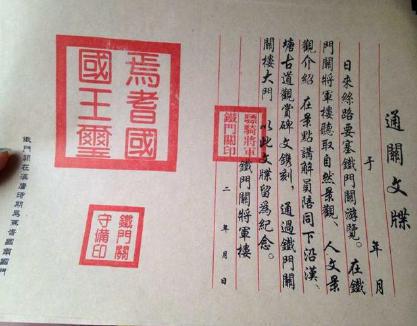 通關文牒
于　年　月
日來絲路要塞鐵門關游覽。在鐵
門關將軍樓聽取自然景觀、人文景
觀介紹 在景點講解員陪同下沿漢、
塘古道觀賞碑文鐫刻，通過鐵門關
關樓大門 以此文牒留爲紀念。
鐵門關將軍樓
二　年　月　日
驃騎將軍
鐵門關印
焉耆國
國王璽
鐵門關
守備印